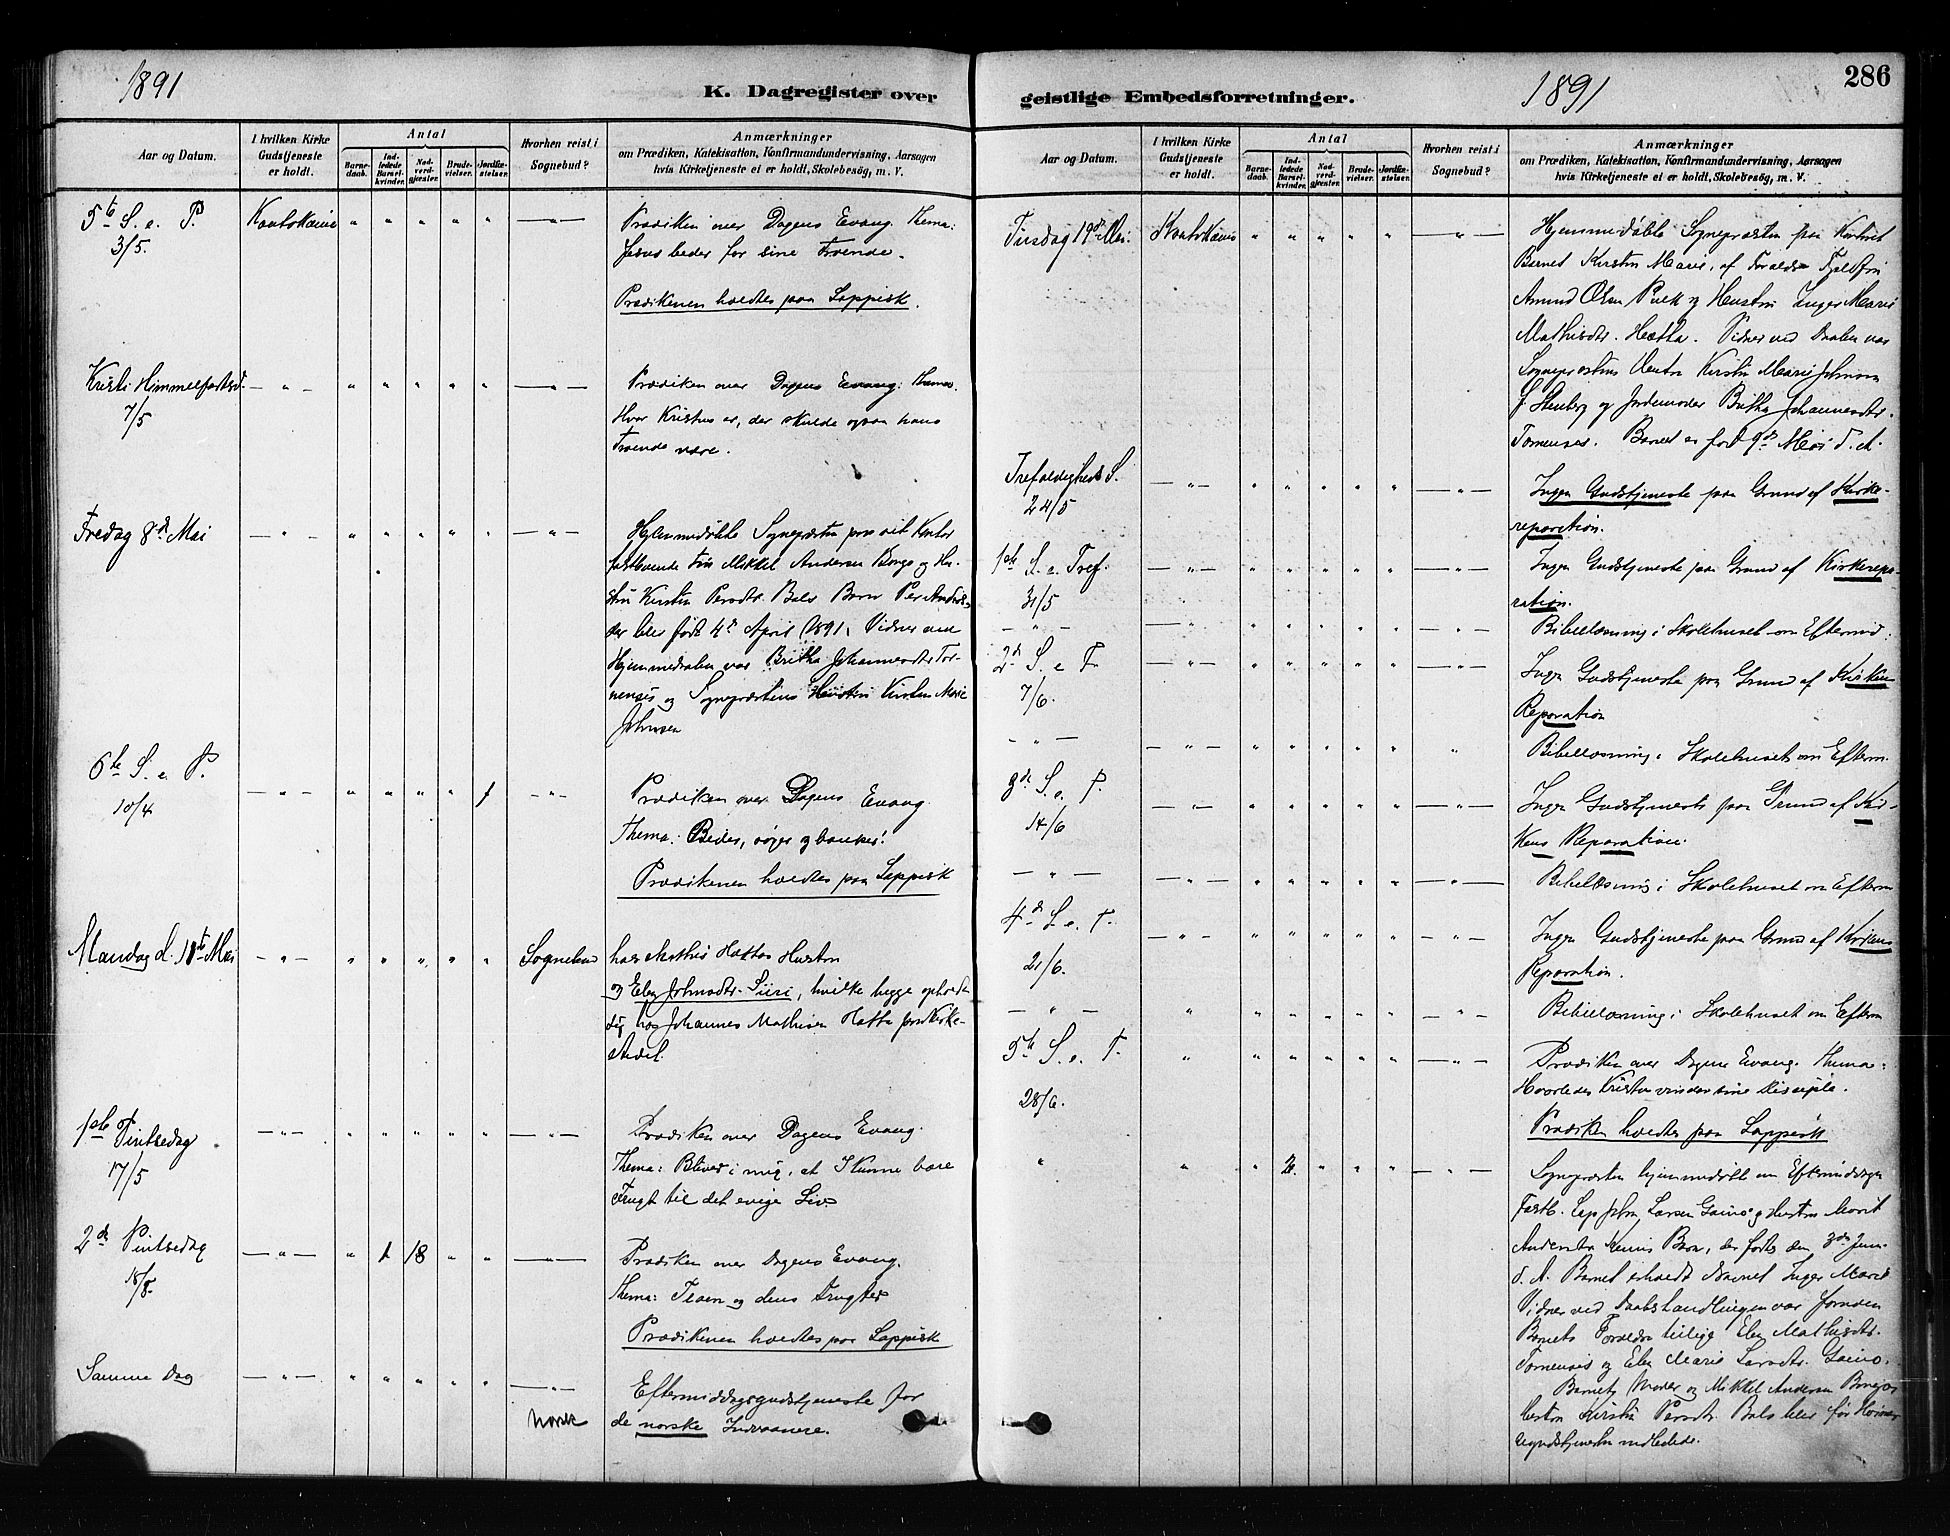 1891
K. Dagregister over
Aar og Datum.
I hvilken Kirke Gudstjeneste er holdt.
Antal
Barnedaab.
Indledede Barselkvinder.
Nadverdgjester.
Brudevielser.
Jordfæstelser.
Hvorhen reist i Sognebud?
Anmærkninger
om Prædiken, Katekisation, Konfirmandundervisning, Aarsagen
hvis Kirketjeneste ei er holdt, Skolebesög, m. V.
5te S. e. P. Koutokeino " " " " " — " —
3/5.
Prædiken over Dagens Evang. Thema:
Jesus beder for sine Troende.
Prædikenen holdtes paa Lappisk.
Kristi Himmelfartsd. — " — " " " " " — " —
7/5
Prædiken over Dagens Evang: Thema:
Hvor Kristus er, der skulde ogsaa hans
Troende være.
Fredag 8de Mai — " — " " " " " — " —
Hjemmedøbte Sognepræsten paa sit Kontor
fastboende Fin Mikkel Andersen Bongo og Hu-
stru Kirsten Persdtr. Bals Barn Per Anders,
der blev født 4de April 1891. Vidner ved
Hjemmedaaben var Britha Johannesdtr Tor-
nensis og Sognepræstens Hustru Kirsten Marie
Johnsen
6te S. e. P. — " — " " " " 1 — " —
10/4
Prædiken over Dagens Evang.
Thema: Beder, søger og banker!
Prædikenen holdtes paa Lappisk
Mandag d. 11te Mai — " — " " " " " Sognebud
hos Mathis Hættas Hustru
og Elen Johnsdtr. Siiri, hvilke begge opholdt
sig hos Johannes Mathisen Hætta paa Kirke-
stedet.
1ste Pintsedag — " — " " " " " — " —
17/5
Prædiken over Dagens Evang.
Thema: Bliver i mig, at I kunne bære
Frugt til det evige Liv.
2den Pintsedag — " — " 1 18 " " — " —
18/5.
Prædiken over Dagens Evang.
Thema: Troen og dens Frugter
Prædikenen holdtes paa Lappisk
Samme Dag — " — " " " " " — " —
Norsk
Eftermiddagsgudstjeneste for
de norske Indvaanere.
geistlige Embedsforretninger.
1891
286
Aar og Datum.
I hvilken Kirke Gudstjeneste er holdt.
Antal
Barnedaab.
Indledede Barselkvinder.
Nadverdgjester.
Brudevielser.
Jordfæstelser.
Hvorhen reist i Sognebud?
Anmærkninger
om Prædiken, Katekisation, Konfirmandundervisning, Aarsagen
hvis Kirketjeneste ei er holdt, Skolebesög, m. V.
Tirsdag 19de Mai. Koutokeino " " " " " — " —
Hjemmedøbte Sognepræsten paa Kontoret
Barnet Kirsten Marie, af Forældre Fjeldfin
Amund Olsen Pulk og Hustru Inger Marie
Mathisdtr. Hætta. Vidner ved Daaben var
Sognepræstens Hustru Kirsten Marie Johnsen
f. Stenberg og Jordemoder Britha Johannesdtr.
Tornensis. Barnet er født 9de Mai d. A.
Trefoldigheds S. — " — " " " " " — " —
24/5
Ingen Gudstjeneste paa Grund af Kirke-
reparation.
1ste S. e. Tref. — " — " " " " " — " —
31/5
Ingen Gudstjeneste paa Grund af Kirkerepa-
ration.
— " — — " — " " " " " — " —
Bibellæsning i Skolehuset om Eftermid.
2den S. e. T. — " — " " " " " — " —
7/6.
Ingen Gudstjeneste paa Grund af Kirkens
Reparation
— " — — " — " " " " " "
Bibellæsning i Skolehuset om Efterm.
3de S. e. T. — " — " " " " " — " —
14/6
Ingen Gudstjeneste paa Grund af Kir-
kens Reparation.
— " — — " — " " " " " — " —
Bibellæsning i Skolehuset om Efterm
4de S. e. T. — " — " " " " " — " —
21/6.
Ingen Gudstjeneste paa Grund af Kirkens
Reparation.
— " — " " " " " " — " —
Bibellæsning i Skolehuset om Efterm
5te S. e. T. " " " " " " — " —
28/6.
Prædiken over Dagens Evang. Thema:
Hvorledes Kristus vinder sine Disciple.
Prædiken holdtes paa Lappisk
" " " 2. " " " — " —
Sognepræsten hjemmedøbte om Eftermiddagen
Fastb. Lap John Larsen Gaino og Hustru Marit
Andersdtr Barn, der fødtes den 3de Juni
d. A. Barnet erholdt Navnet Inger Marie
Vidner ved Daabshandlingen var foruden
Barnets Forældre tillige Elen Mathisdtr.
Tornensis og Elen Marie Larsdtr. Gaino.
Barnets Moder og Mikkel Andersen Bongos
Hustru Kirsten Persdtr. Bals blev før Høimes-
segudstjenesten indledede.